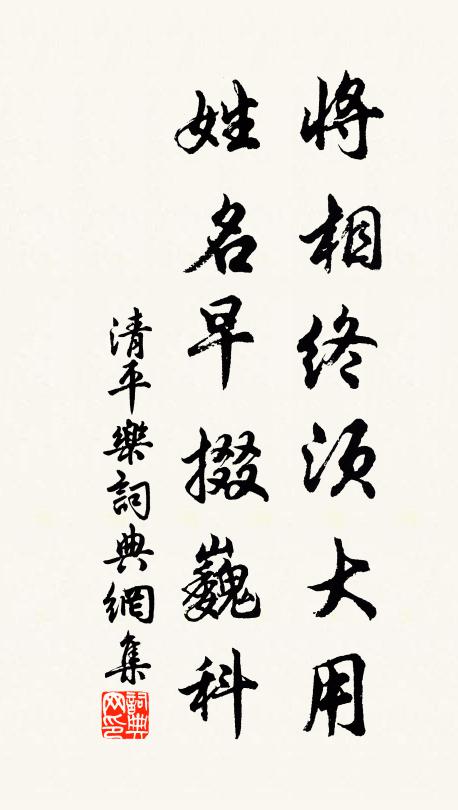 將相終須大用
姓名早掇巍科
清平樂詞典網集
詞典
网印